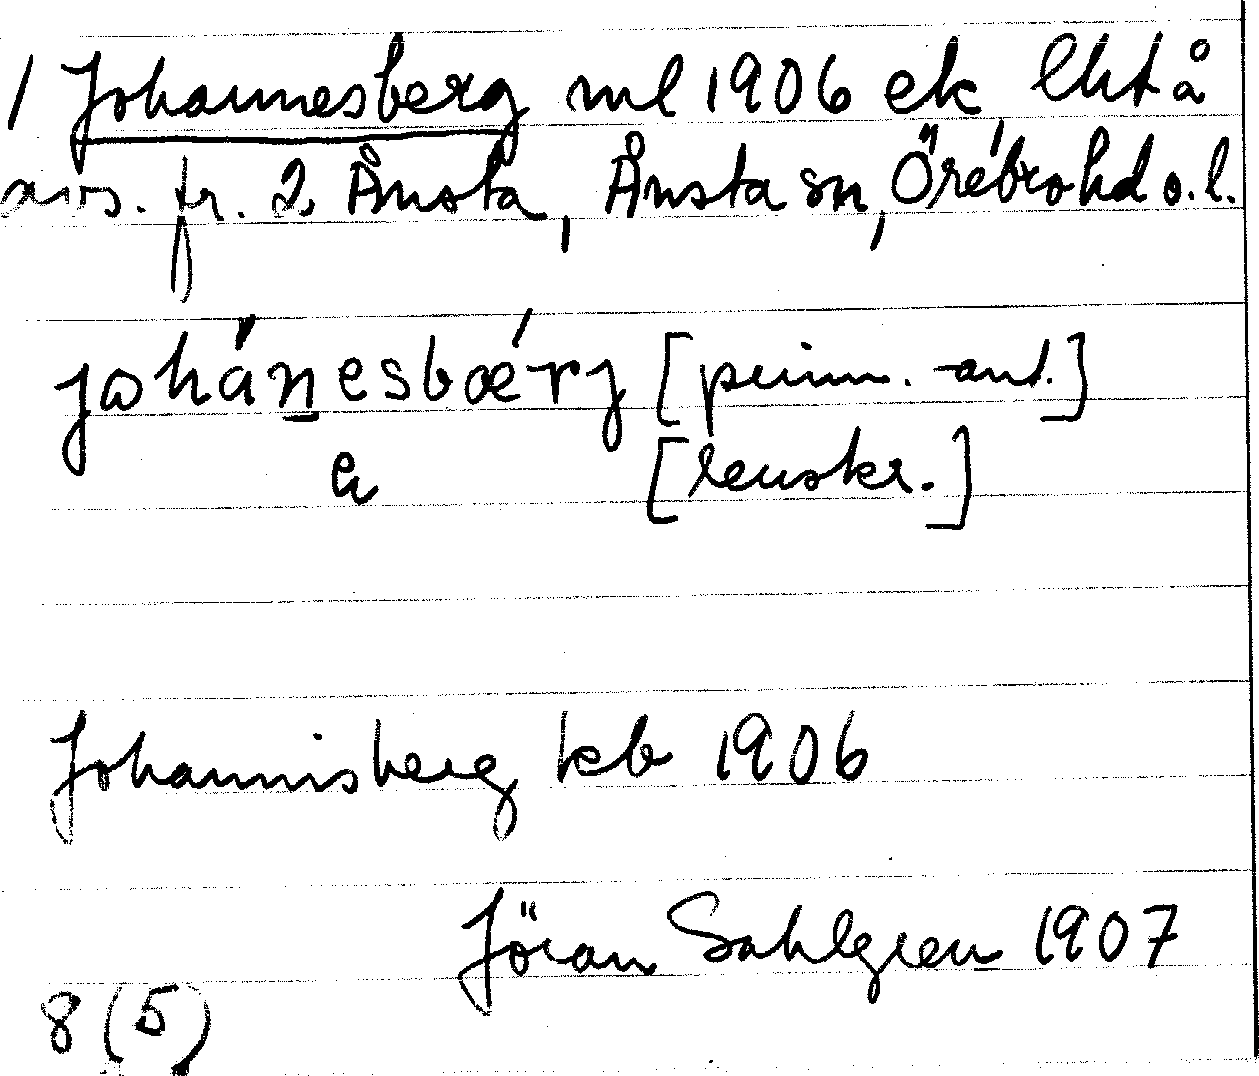 1 Johannesberg ml 1906 ek lht å
avs. fr. 2 Ånsta, Ånsta sn, Örebro hd ö. l.
johánesbǽrj [penn.-ant.]
a [renskr.]
Johannisberg kb 1906
Jöran Sahlgren 1907
8 (5)